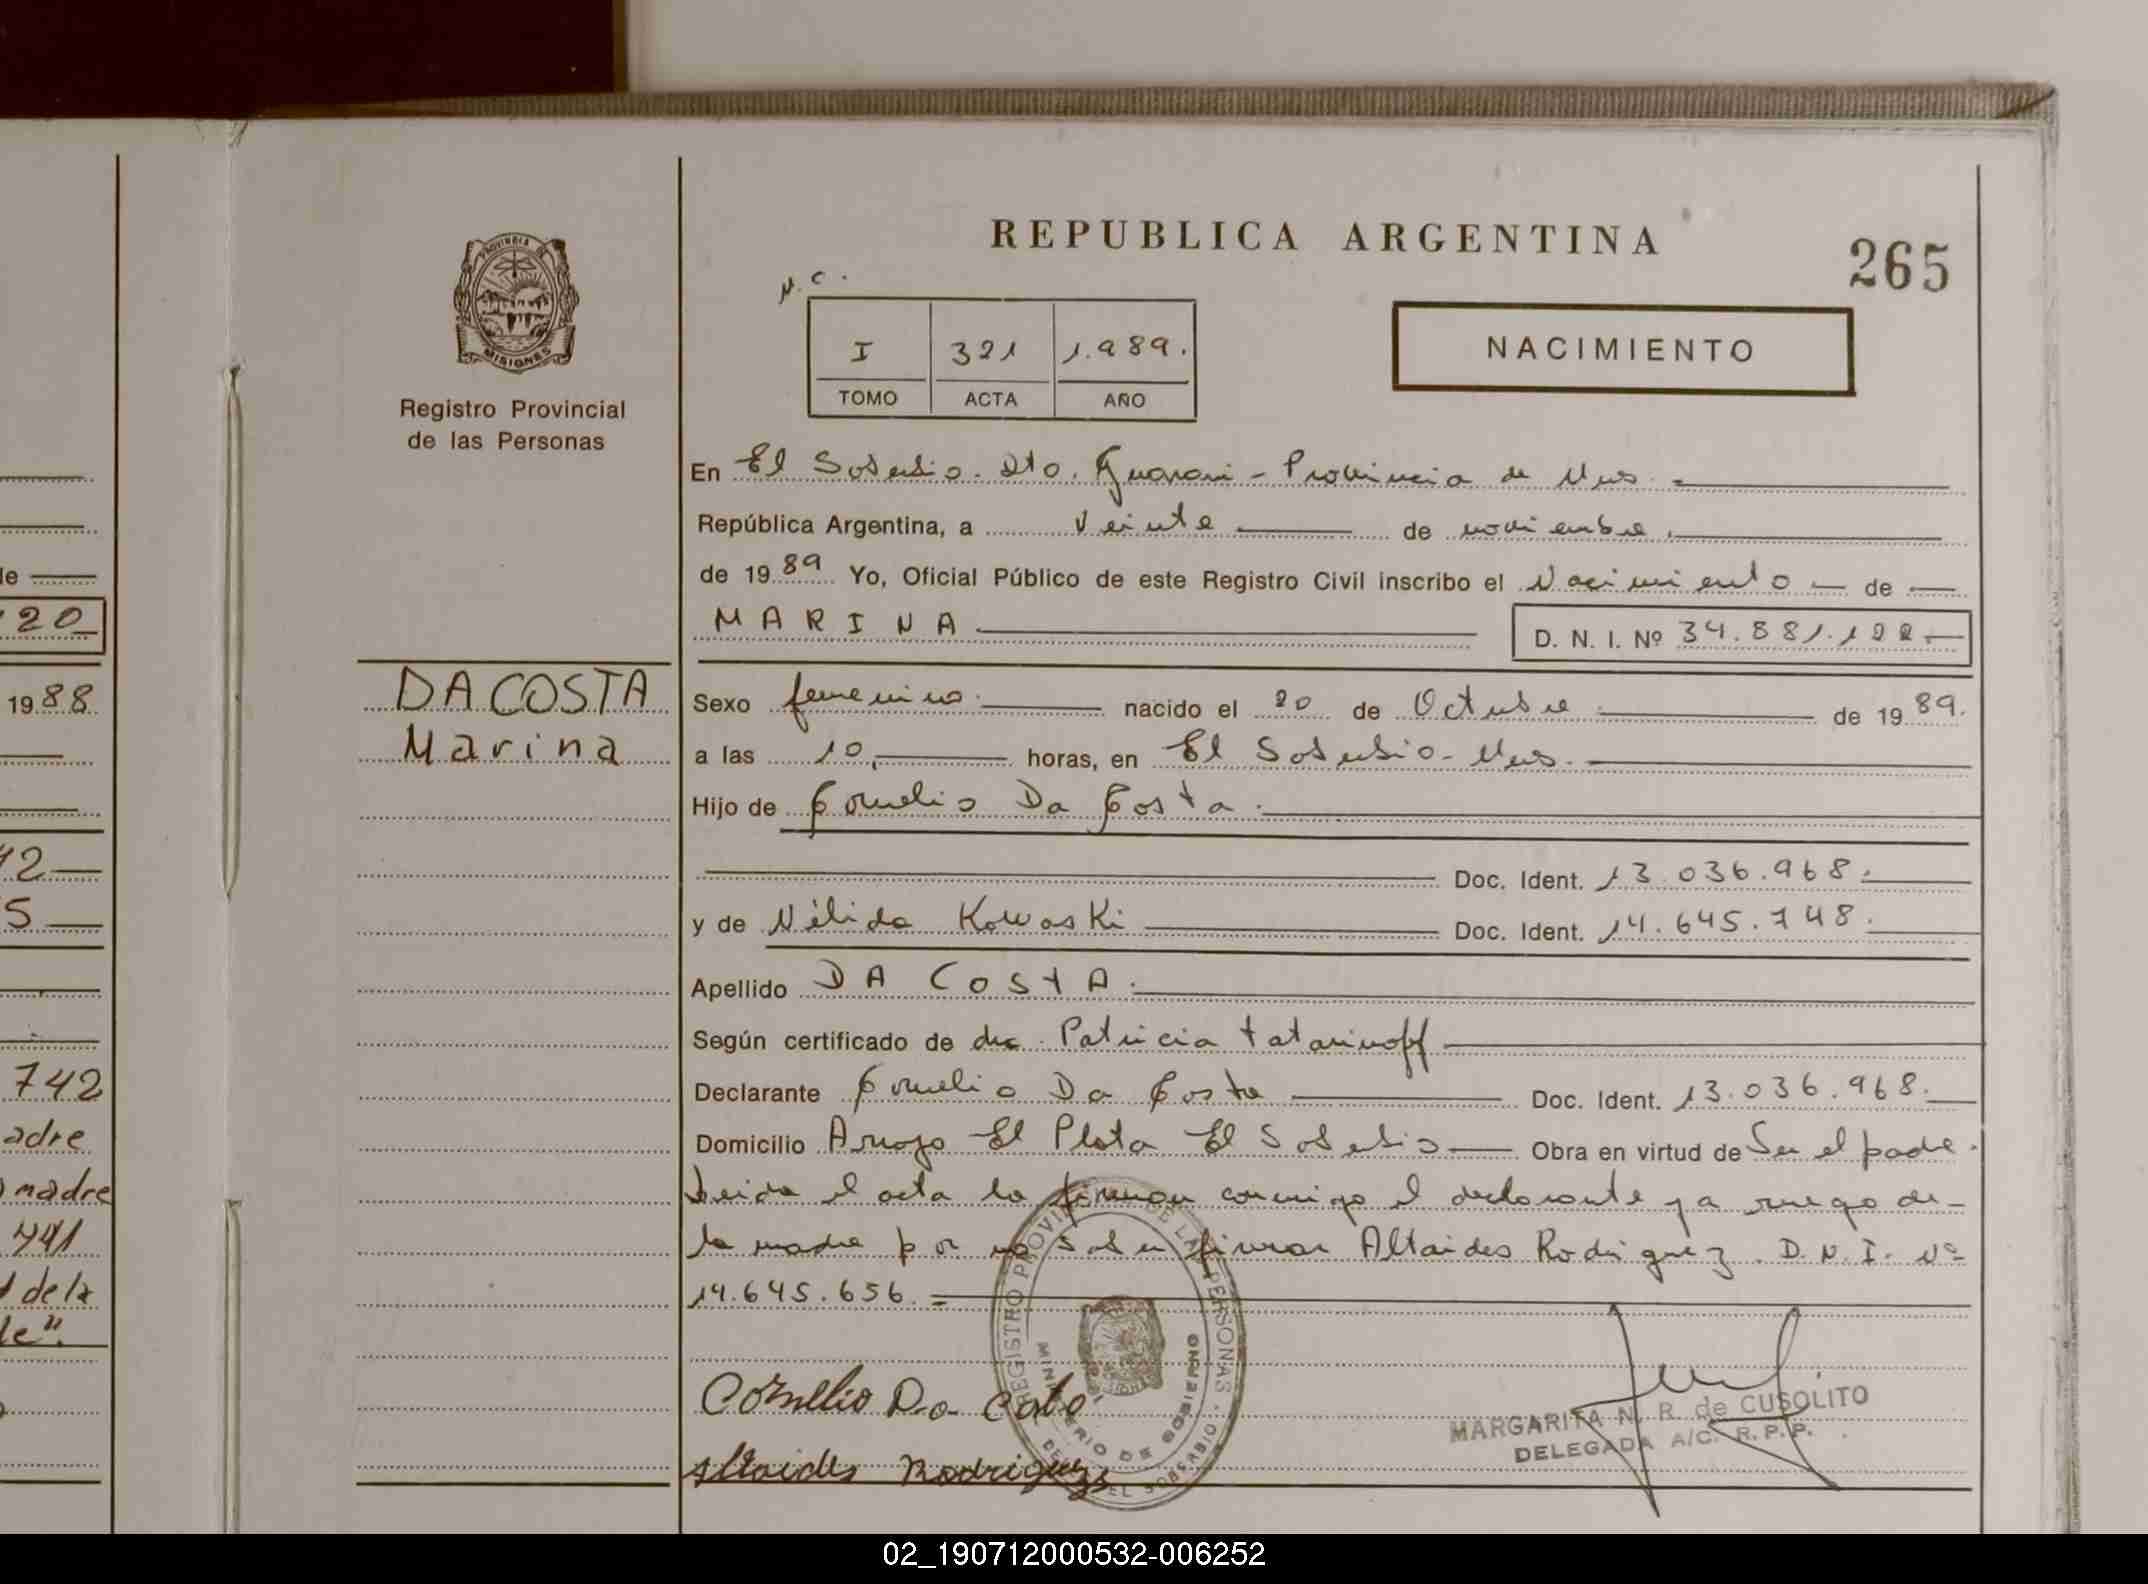 20
1988
12
5
742
adre
madre
741
de la
le".
PROVINCIA DE
MISIONES
Registro Provincial
de las Personas
DA COSTA
Marina
REPUBLICA ARGENTINA
265
N.C.
I 321 1.989.
TOMO ACTA AÑO
NACIMIENTO
En El Soberbio. Dto. Guarani - Provincia de Mnes.
República Argentina, a veinte de noviembre.
de 1989 Yo, Oficial Público de este Registro Civil inscribo el Nacimiento de
MARINA D. N. I. Nº
Sexo femenino. nacido el 20 de Octubre de 1989.
a las 10, horas, en El Soberbio - Mnes.
Hijo de Cornelio Da Costa.
Doc. Ident. 13.036.968.
y de Nélida Kowaski Doc. Ident. 14.645.748.
Apellido DA COSTA.
Según certificado de dra. Patricia Tatarinoff
Declarante Cornelio Da Costa Doc. Ident. 13.036.968.
Domicilio Arroyo El Plata El Soberbio Obra en virtud de Ser el padre.
Leida el acta la firman conmigo el declarante y a ruego de
la madre por no saber firmar Altaides Rodriguez D.N.I. Nº
14.645.656.
REGISTRO PROVINCIAL DE LAS PERSONAS
MINISTERIO DE GOBIERNO
DEL EL SOBERBIO
Cornelio Da Costa
Altaides Rodriguez
MARGARITA N. R. de CUSOLITO
DELEGADA A/C. R.P.P.
02_190712000532-006252